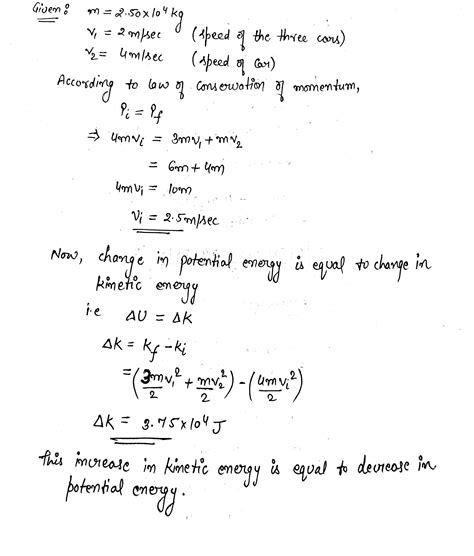 Given: m = 2.50 x 10⁴ kg
v₁ = 2 m/sec (speed of the three cars)
v₂ = 4 m/sec (speed of car)
According to law of conservation of momentum,
Pᵢ = P_f
⇒ 4mvᵢ = 3mv₁ + mv₂
= 6m + 4m
4mvᵢ = 10m
vᵢ = 2.5 m/sec
Now, change in potential energy is equal to change in
kinetic energy
i.e ΔU = ΔK
ΔK = K_f - Kᵢ
= (3mv₁²/2 + mv₂²/2) - (4mvᵢ²/2)
ΔK = 3.75 x 10⁴ J
This increase in kinetic energy is equal to decrease in
potential energy.